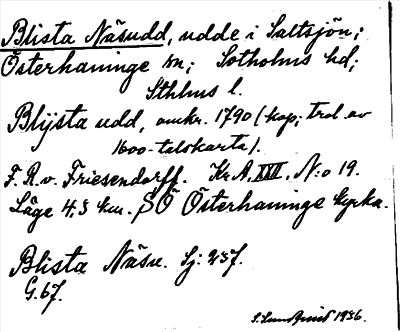 Blista Näsudd, udde i Saltsjön;
Österhaninge sn; Sotholms hd;
Sthlms l.
Blijsta udd, omkr. 1790 (kop; trol. av
1600-talskarta).
F. R. v. Friesendorff. Kr.A. XXII, N:o 19.
Läge 4,5 km. SÖ Österhaninge kyrka.
Blista Näsu. Sj: 237.
G. 67.
S. Lundqvist 1936.